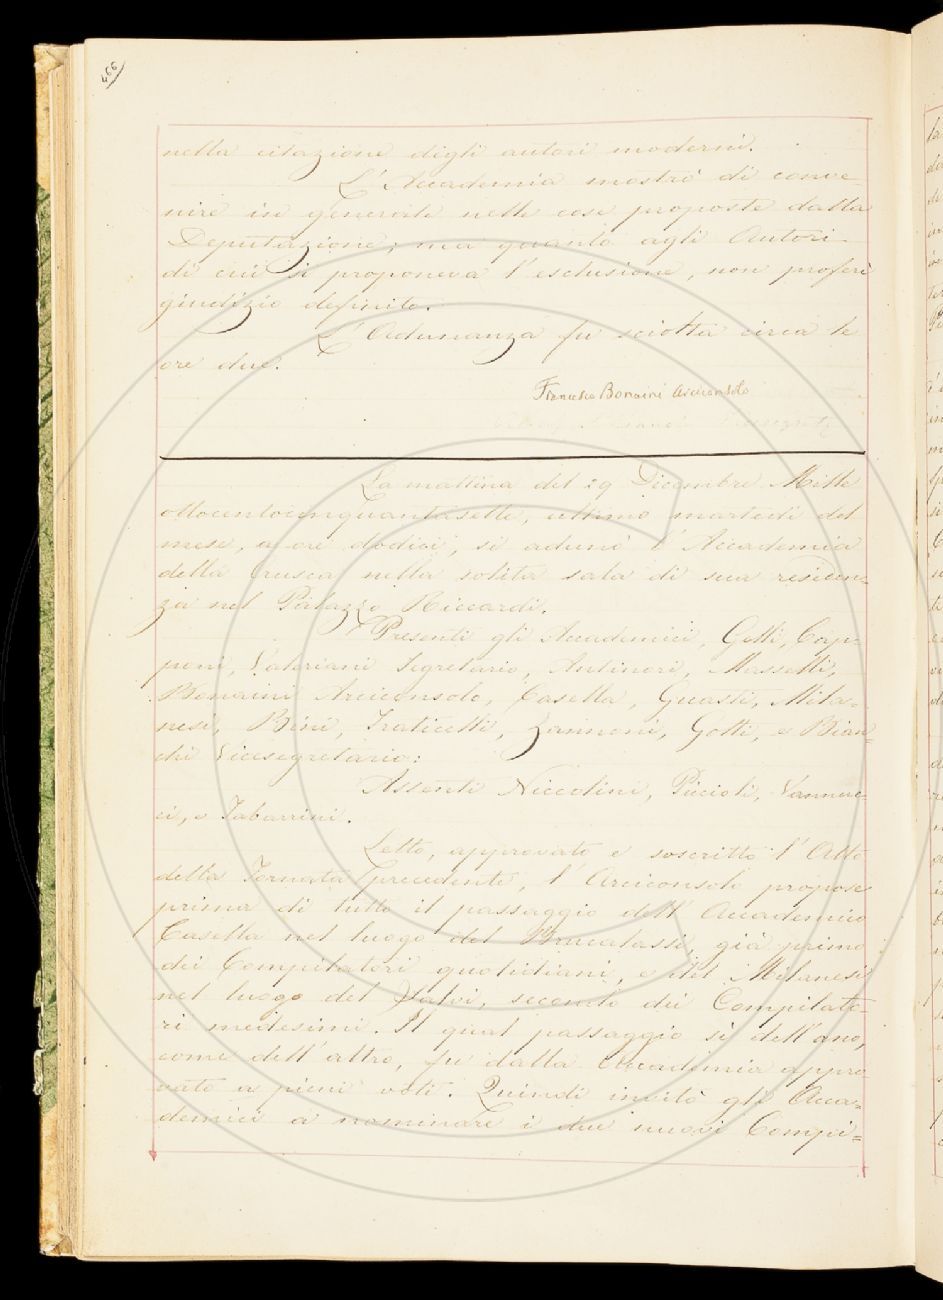 466
nella citazione degli autori moderni.
L'Accademia mostrò di conve-
nire in generale nelle cose proposte dalla
Deputazione; ma quanto agli Autori
di cui si proponeva l'esclusione, non proferì
giudizio definito.
L'Adunanza fu sciolta circa le
ore due.
Francesco Bonaini Arciconsolo
La mattina del 29 Dicembre Mille
ottocentocinquantasette, ultimo martedì del
mese, a ore dodici, si adunò l'Accademia
della Crusca nella solita sala di sua residen=
za nel Palazzo Riccardi.
Presenti gli Accademici, Gelli, Cap-
poni, Valeriani Segretario, Antinori, Masselli,
Bonaini Arciconsolo, Casella, Guasti, Mila-
nesi, Bini, Fraticelli, Zannoni, Gotti, e Bian=
chi Vicesegretario:
Assenti Niccolini, Puccioli, Vannuc-
ci, e Tabarrini.
Letto, approvato e soscritto l'Atto
della Tornata precedente, l'Arciconsolo propose
prima di tutto il passaggio dell'Accademico
Casella nel luogo del Brucalassi, già primo
dei Compilatori quotidiani, e del Milanesi
nel luogo del Salvi, secondo dei Compilato-
ri medesimi. Il qual passaggio sì dell'uno,
come dell'altro, fu dalla Accademia appro-
vato a pieni voti. Quindi invitò gli Acca=
demici a nominare i due nuovi Compi=